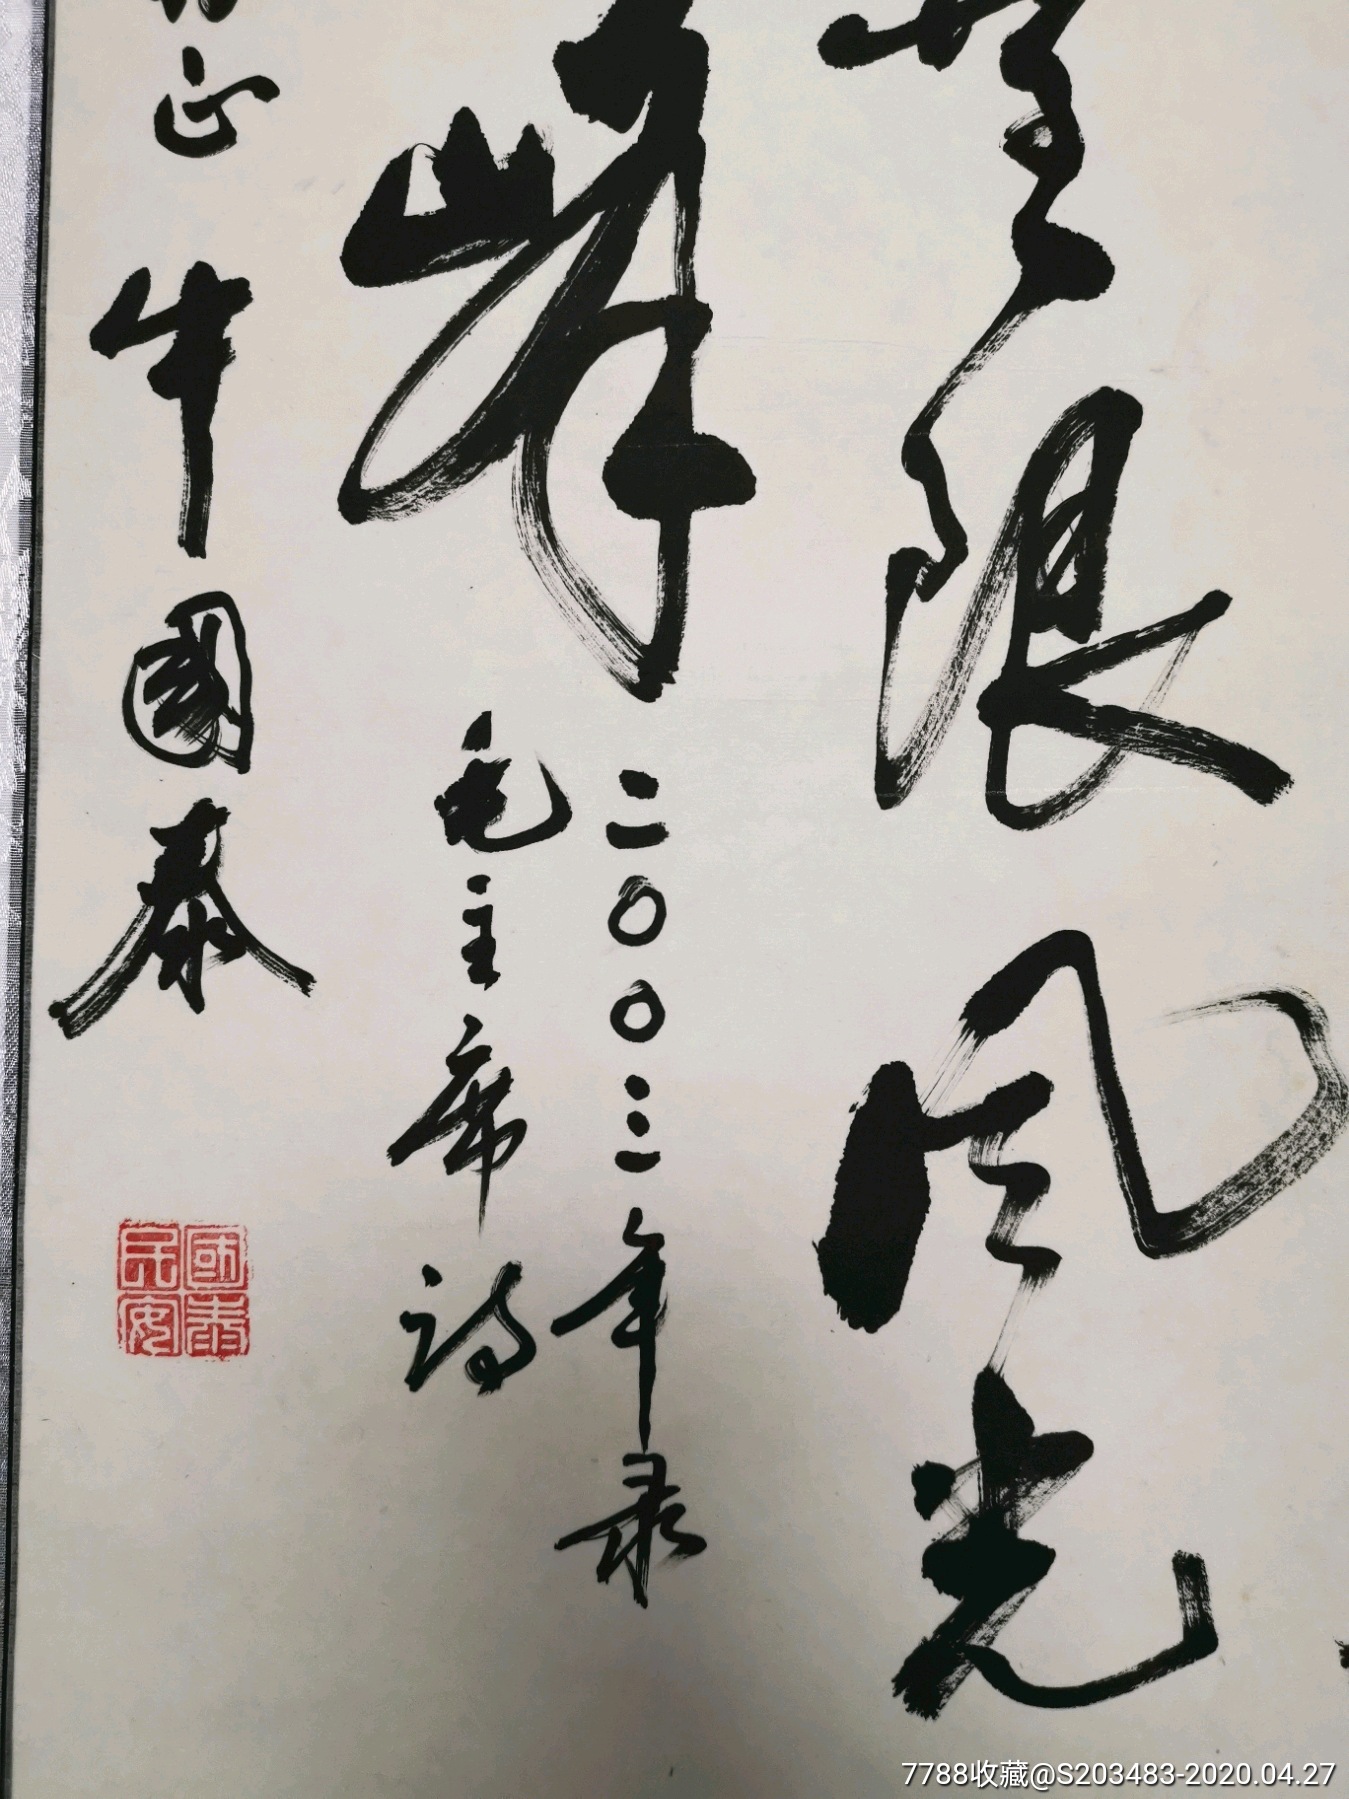 无限风光
峰
二〇〇三年录
毛主席诗
正
牛國泰
國泰民安
7788收藏@S203483-2020.04.27